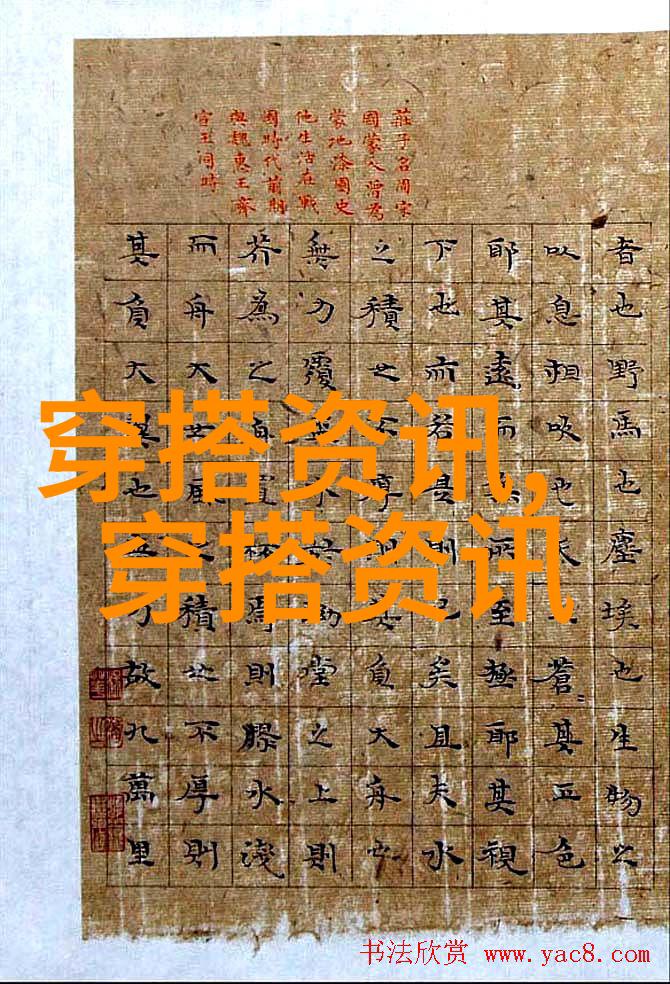 穿搭资讯,
穿搭资讯
莊子名周宋
國蒙人曾為
蒙地漆園史
他生活在戰
國時代前期
與魏惠王齊
宣王同時
者也野馬也塵埃也生物之
以息相吹也天之蒼=其正色
耶其遠而無所至極耶其視
下也而若是則已矣且夫水
之積也不厚則其負大舟也
無力覆水於坳堂之上則
芥為之舟置杯焉則膠水淺
而舟大也風之積也不厚則
其負大翼也無力故九萬里
书法欣赏 www.yac8.com